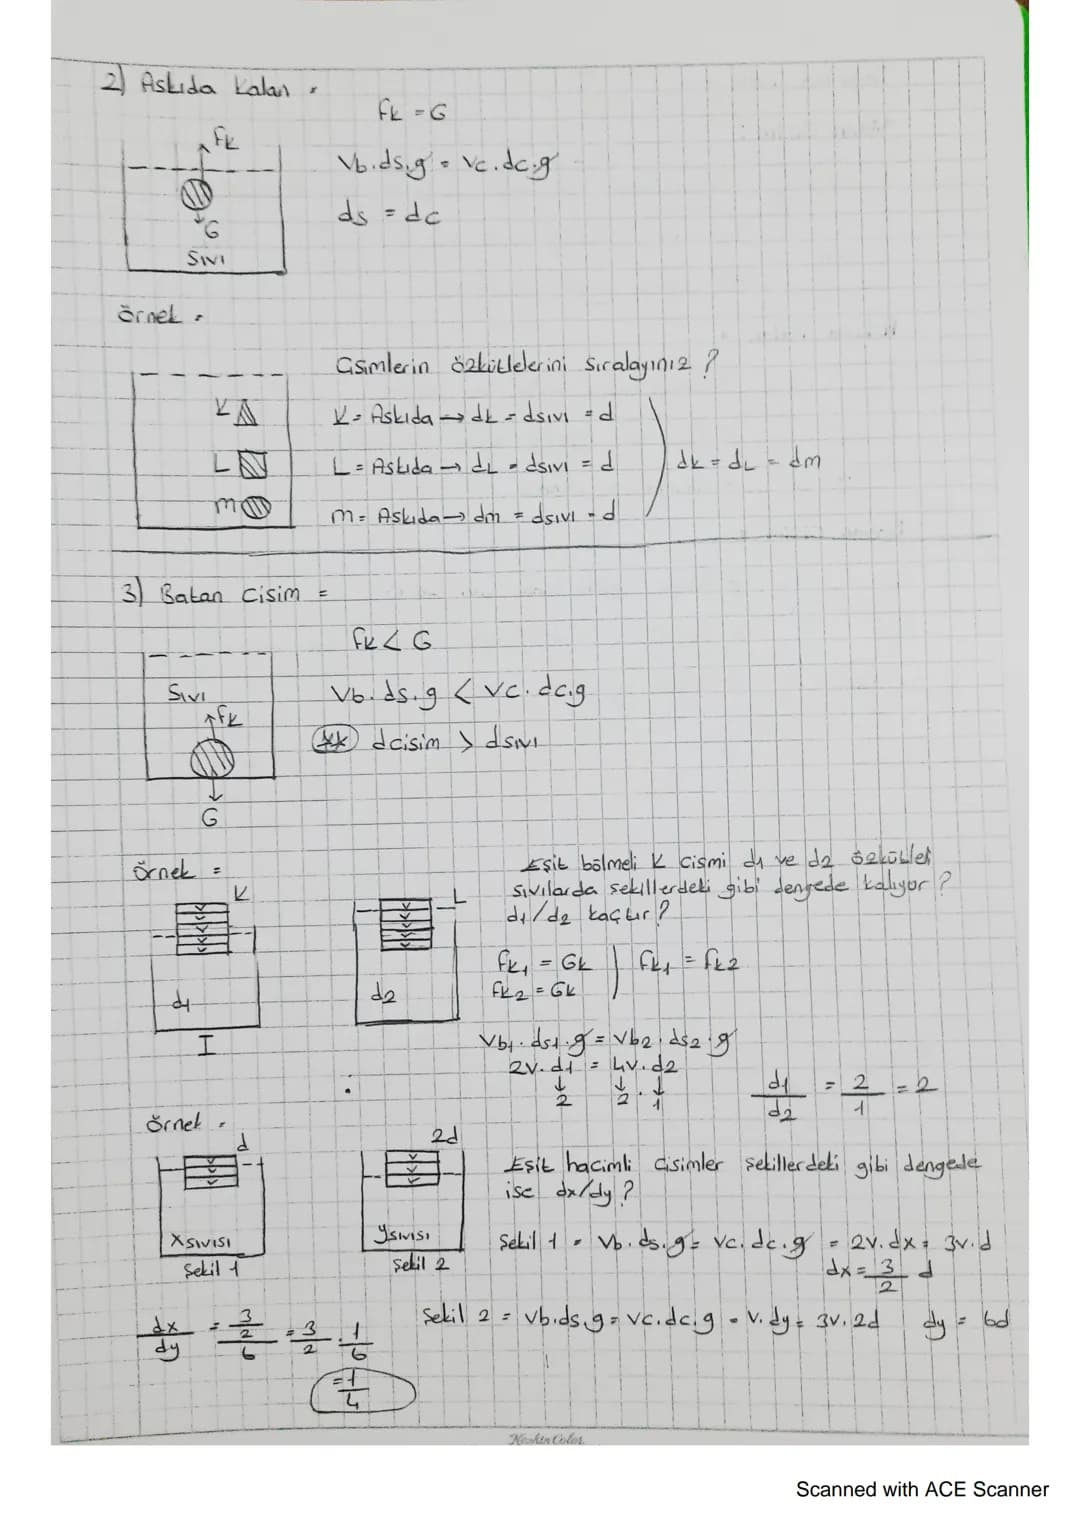 2) Askıda Kalan =
fk = G
fk
Vb.ds.g = Vc.dc.g
ds = dc
G
Sıvı
Örnek =
Cisimlerin özkütlelerini Sıralayınız ?
K K= Askıda → dk = dsıvı = d
L L= Askıda → dL = dsıvı = d dk = dL = dm
m m= Askıda → dm = dsıvı = d
3) Batan Cisim =
fk < G
Sıvı
Vb.ds.g < Vc.dc.g
fk
** dcisim > dsıvı
G
Örnek =
Eşit bölmeli K cismi d1 ve d2 özkütleli
K L
sıvılarda şekillerdeki gibi dengede kalıyor ?
d1/d2 kaçtır ?
fk1 = Gk fk1 = fk2
fk2 = Gk
d1 d2
I
Vb1.ds1.g = Vb2.ds2.g
2V.d1 = 4V.d2
↓ ↓ . ↓
2 2 1
d1/d2 = 2/1 = 2
Örnek =
d 2d
Eşit hacimli cisimler şekillerdeki gibi dengede
ise dx/dy ?
X sıvısı Y sıvısı
Şekil 1 Şekil 2
Şekil 1 = Vb.ds.g = Vc.dc.g = 2V.dx = 3V.d
dx = 3/2 d
Şekil 2 = Vb.ds.g = Vc.dc.g = V.dy = 3V.2d dy = 6d
dx/dy = 3/2/6 = 3/2 . 1/6
= 1/4
Keskin Color
Scanned with ACE Scanner